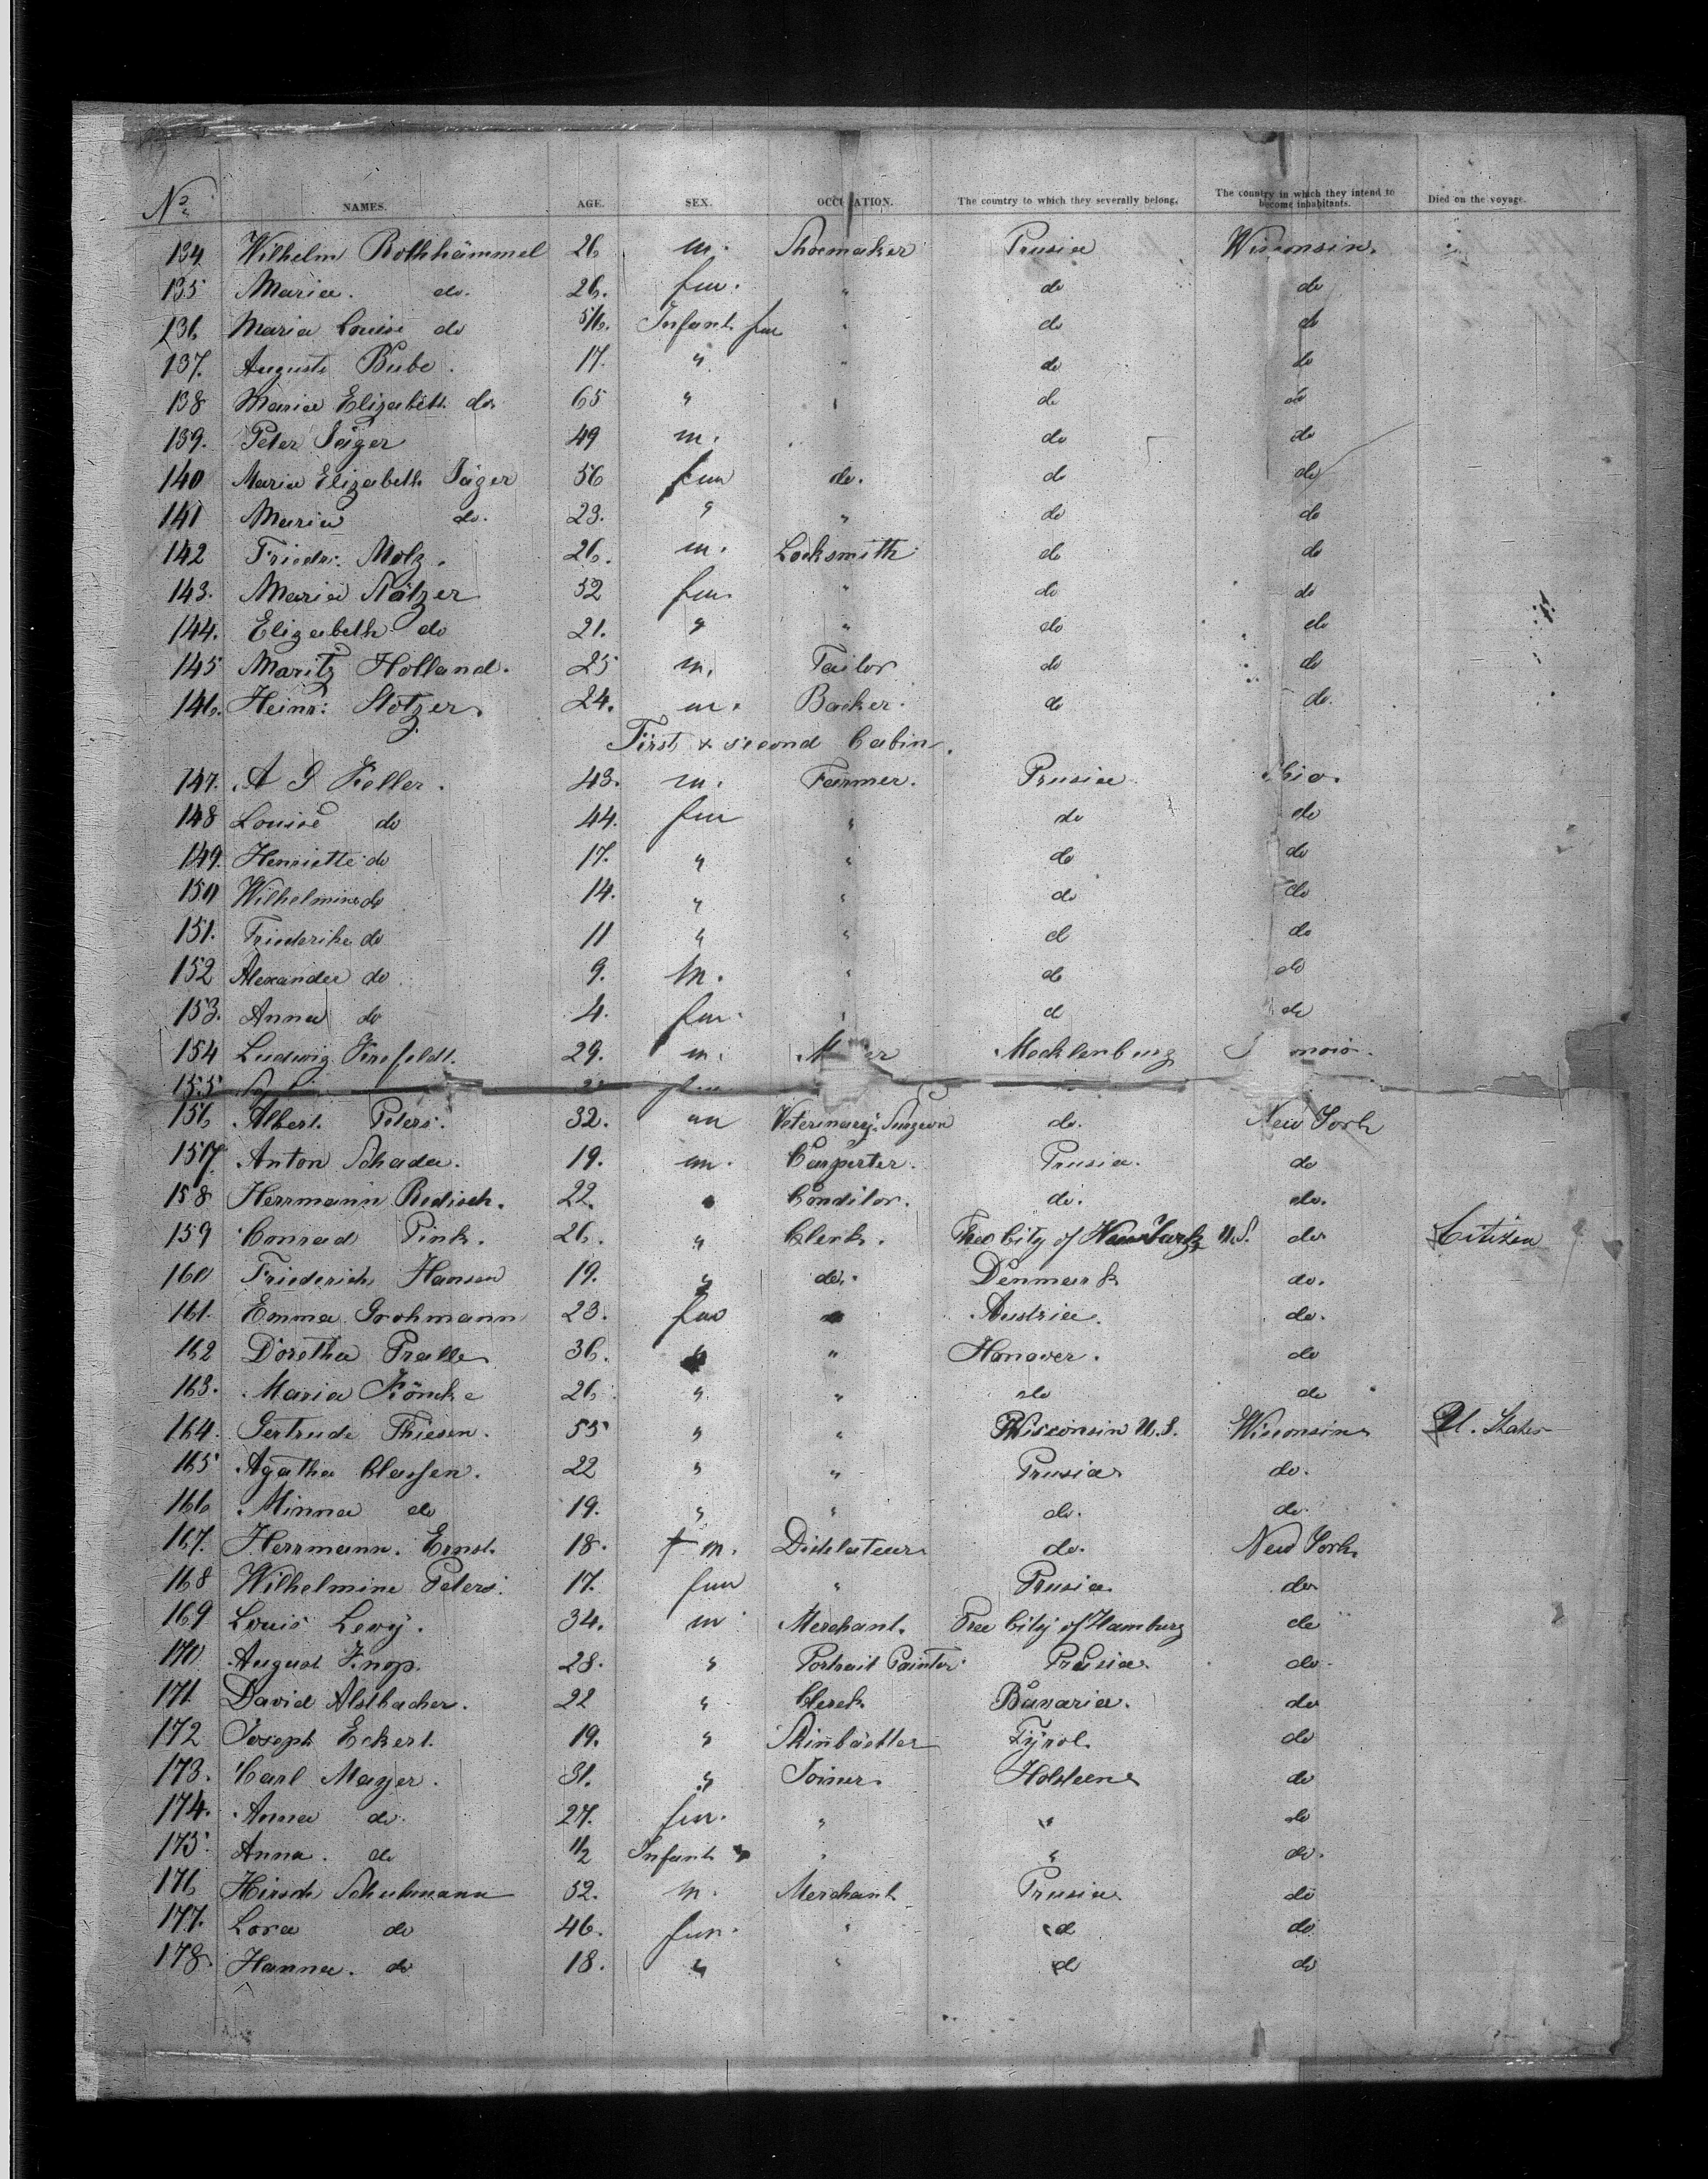 No. NAMES. AGE. SEX. OCCUPATION. The country to which they severally belong. The country in which they intend to become inhabitants. Died on the voyage.
134 Wilhelm Rothhämmel 26 m. Shoemaker Prusia Wisconsin.
135 Maria. do. 26. fem. " do do
136 Maria Louise do 5/6. Infant fem " do do
137. Auguste Bube. 17. " " do do
138 Maria Elizabeth do. 65 " " do do
139. Peter Jäger 49 m. do do
140 Maria Elizabeth Jäger 56 fem do. do do
141 Maria do. 23. " " do do
142 Friedr: Molz. 26. m. Locksmith do do
143. Maria Nötzer 52 fem. " do do
144. Elizabeth do 21. " " do do
145 Maritz Holland. 25 m. Tailor do do
146. Heinr: Stotzer. 24. m. Backer. do do.
First & second Cabin.
147. A G Keller. 43. m. Farmer. Prusia Ohio.
148 Louise do 44. fem " do do
149. Henriette do 17. " " do do
150 Wilhelmine do 14. " " do do
151. Friederike do 11 " " d do
152 Alexander do 9. m. " do do
153. Anna do 4. fem. " d do
154 Ludwig Krefeldt. 29. m. Mecklenburg
155
156 Albert Peters. 32. m Veterinary Surgeon do. New York
157. Anton Schader. 19. m. Carpenter. Prusia. do
158 Herrmann Redisch. 22. Conditor. do. do.
159 Conrad Pink. 26. " Clerk. Free City of Hamburg U.S. do. Citizen
160 Friederich Hansen 19. " do. Denmark do.
161. Emma Grohmann 23. fem Austria. do.
162 Dorethea Pralle 36. " " Hanover. do
163. Maria Köncke 26 " " do do
164. Gertrude Thiesen. 55 " " Wisconsin U.S. Wisconsin U. States
165 Agatha Classen. 22 " " Prusia do.
166 Minna do 19. " " do. do.
167. Herrmann. Ernst. 18. m. Distelateur do. New York.
168 Wilhelmine Peters. 17. fem " Prusia do
169 Louis Levy. 34. m Merchant. Free City of Hamburg do
170 August Knop. 28. " Portrait Painter Prusia do.
171 David Alstbacher. 22 " Clerck Bavaria. do
172 Joseph Eckert. 19. " Tyrol. do
173. Carl Mayer. 31. " Joiner. Holsteen do
174. Anna do. 27. fem. " " do
175. Anna. do 1/2 Infant " " " do.
176 Hirsch Schuhmann 52. m. Merchant Prusia do
177. Lora do 46. fem. " d do
178. Hanna. do 18. " " do do